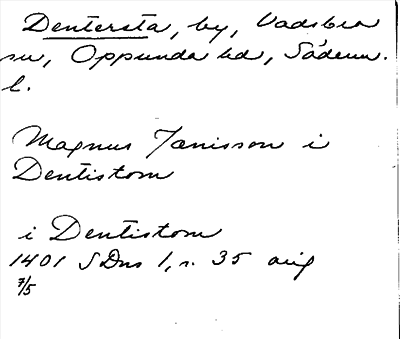 Dentersta, by, Vadsbro
sn, Oppunda hd, Söderm.
l.
Magnus Jænisson i
Dentistom
i Dentistom
1401 SDns 1, s. 35 orig
7/5